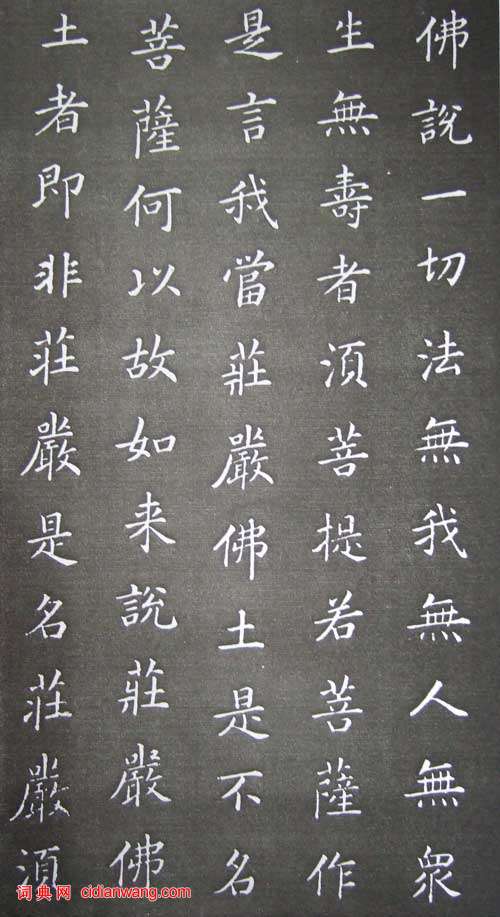 佛說一切法無我無人無衆
生無壽者湏菩提若菩薩作
是言我當莊嚴佛土是不名
菩薩何以故如来說莊嚴佛
土者即非莊嚴是名莊嚴湏
词典网 cidianwang.com